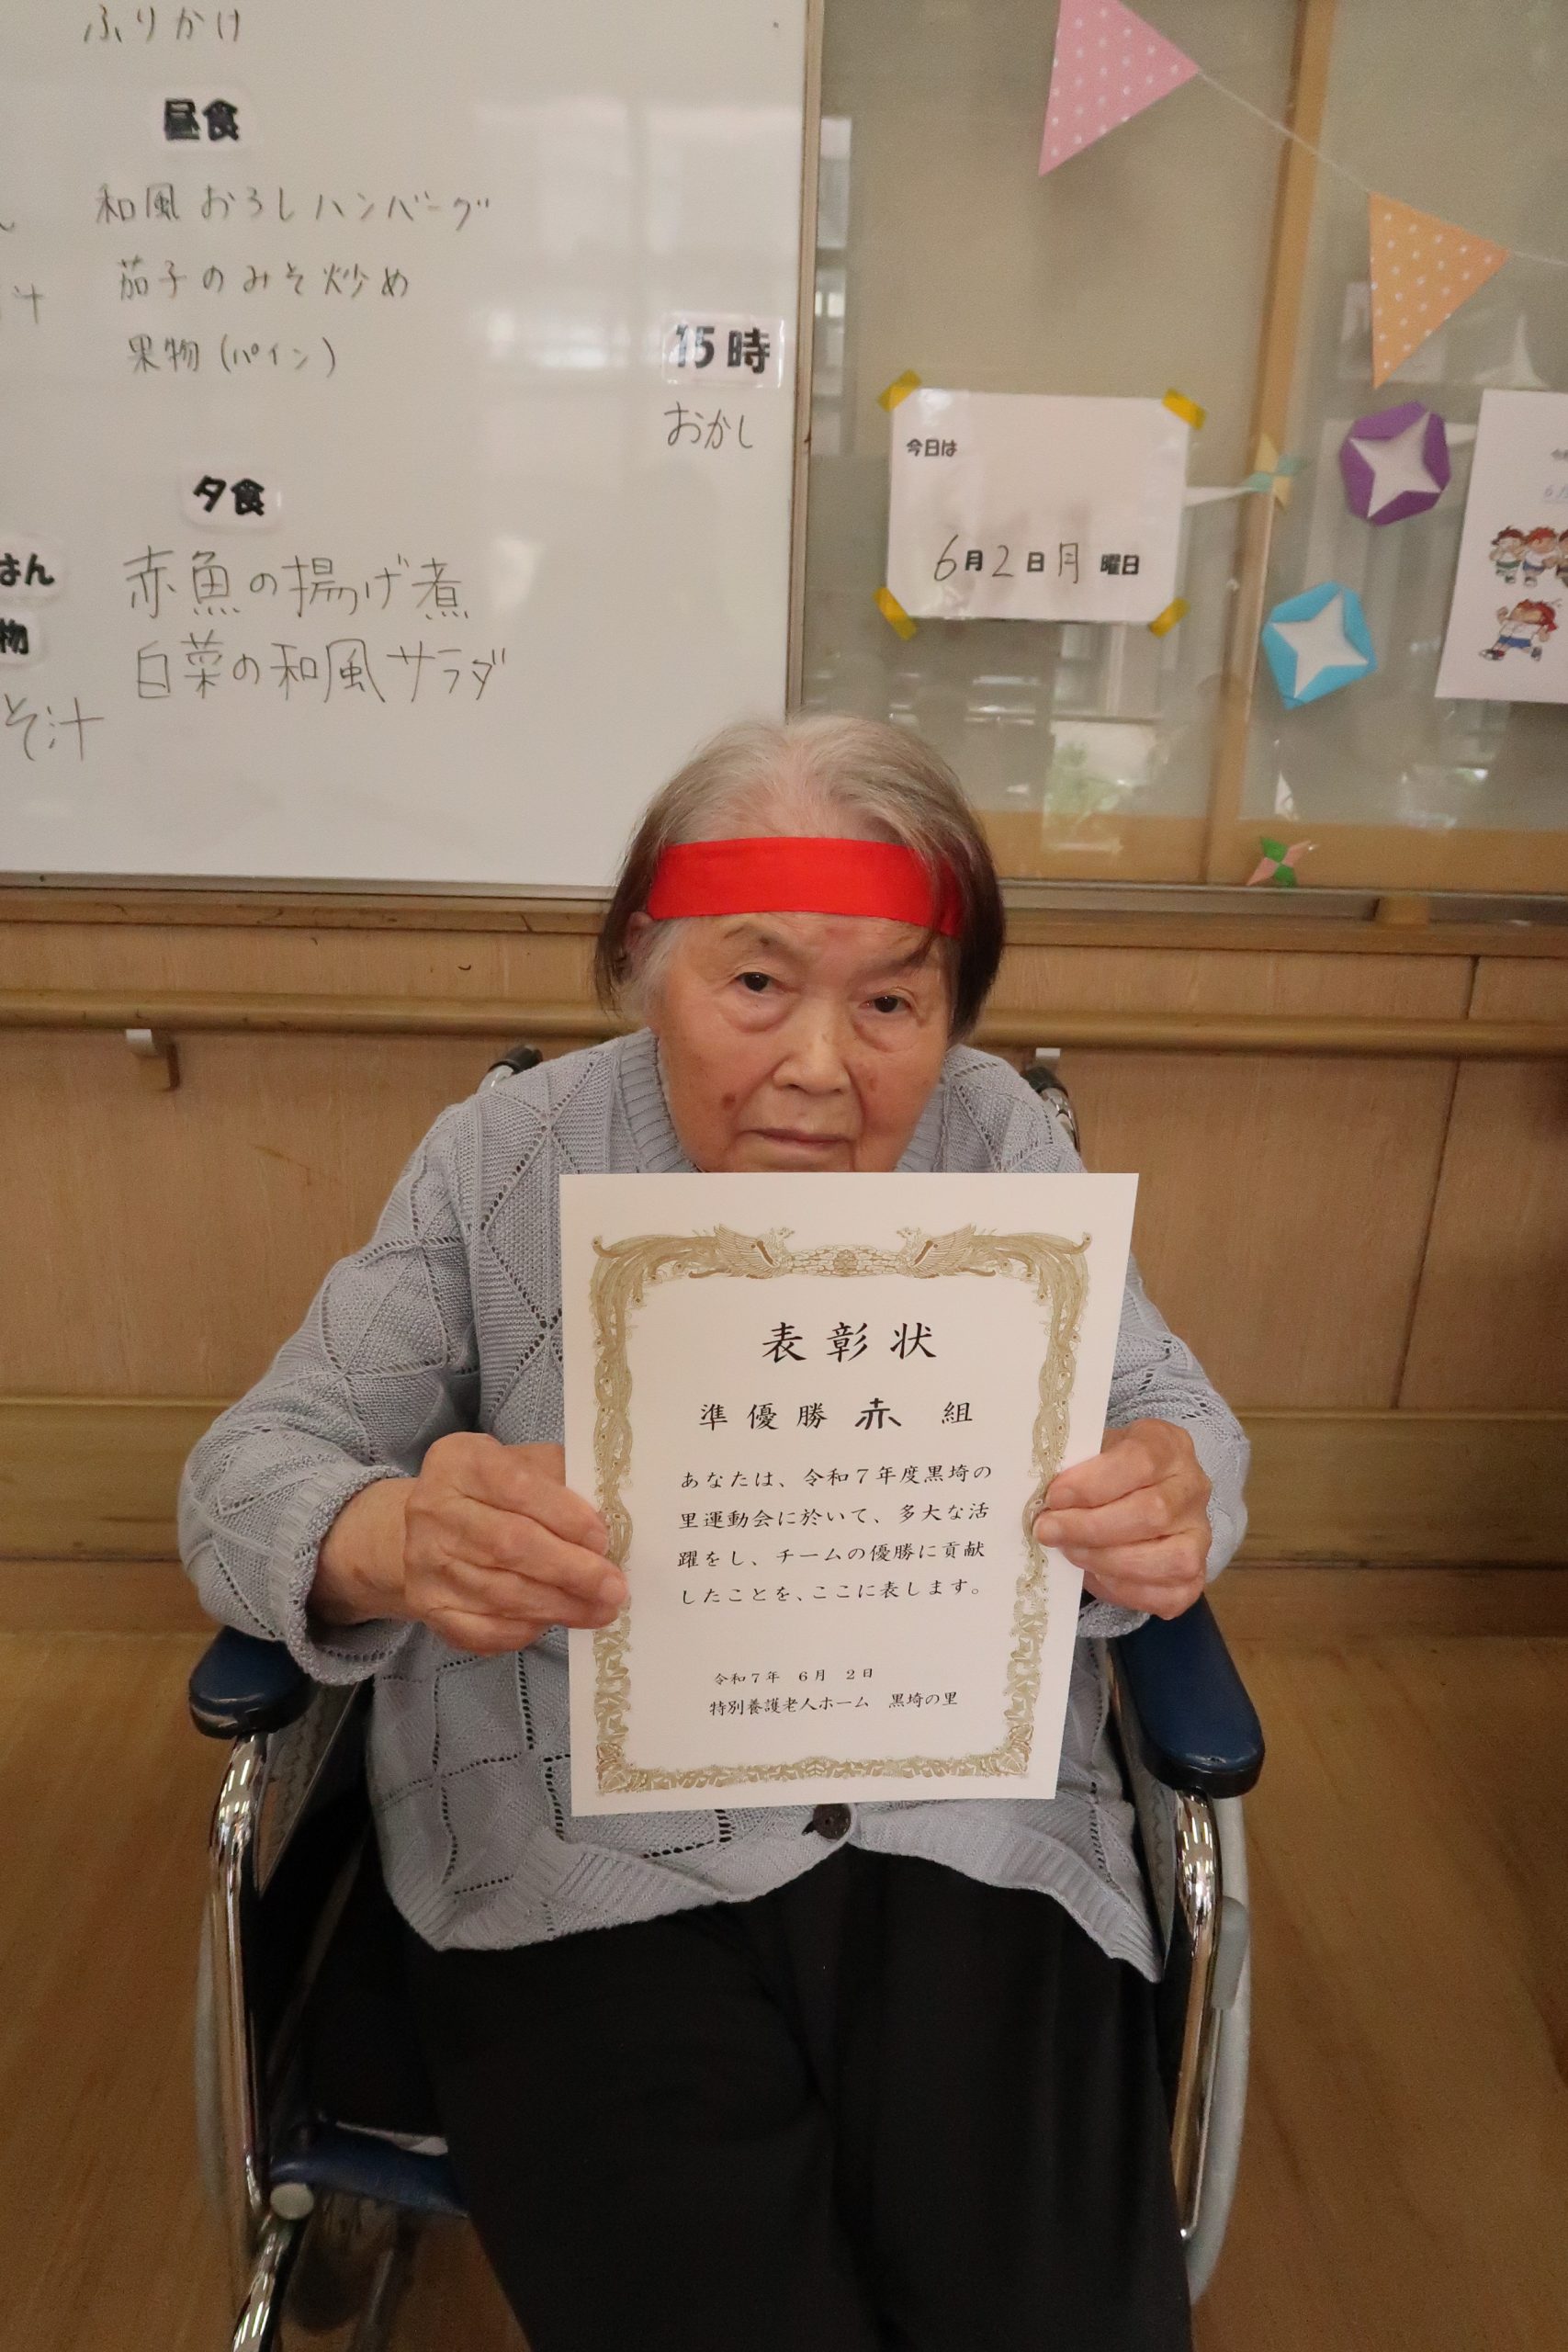 ふりかけ
昼食
和風おろしハンバーグ
茄子のみそ炒め
果物(パイン)
汁
15時
おかし
夕食
はん
赤魚の揚げ煮
物
白菜の和風サラダ
そ汁
今日は
6月2日月曜日
表彰状
準優勝 赤 組
あなたは、令和7年度黒埼の
里運動会に於いて、多大な活
躍をし、チームの優勝に貢献
したことを、ここに表します。
令和7年 6月 2日
特別養護老人ホーム 黒埼の里